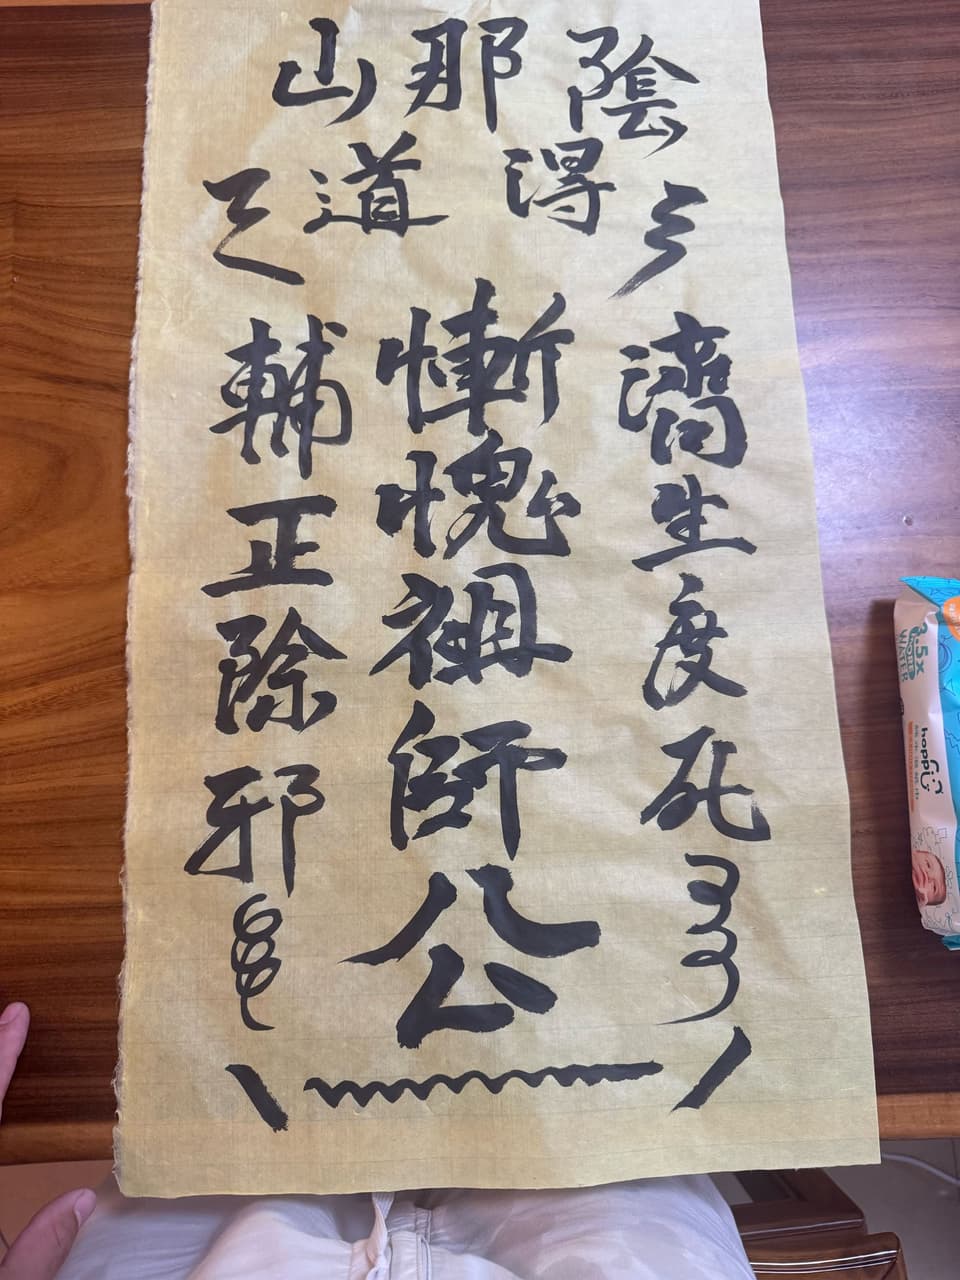 陰那山
得道
慚愧祖師公
濟生度死
輔正除邪
3.5x
WATER
happi